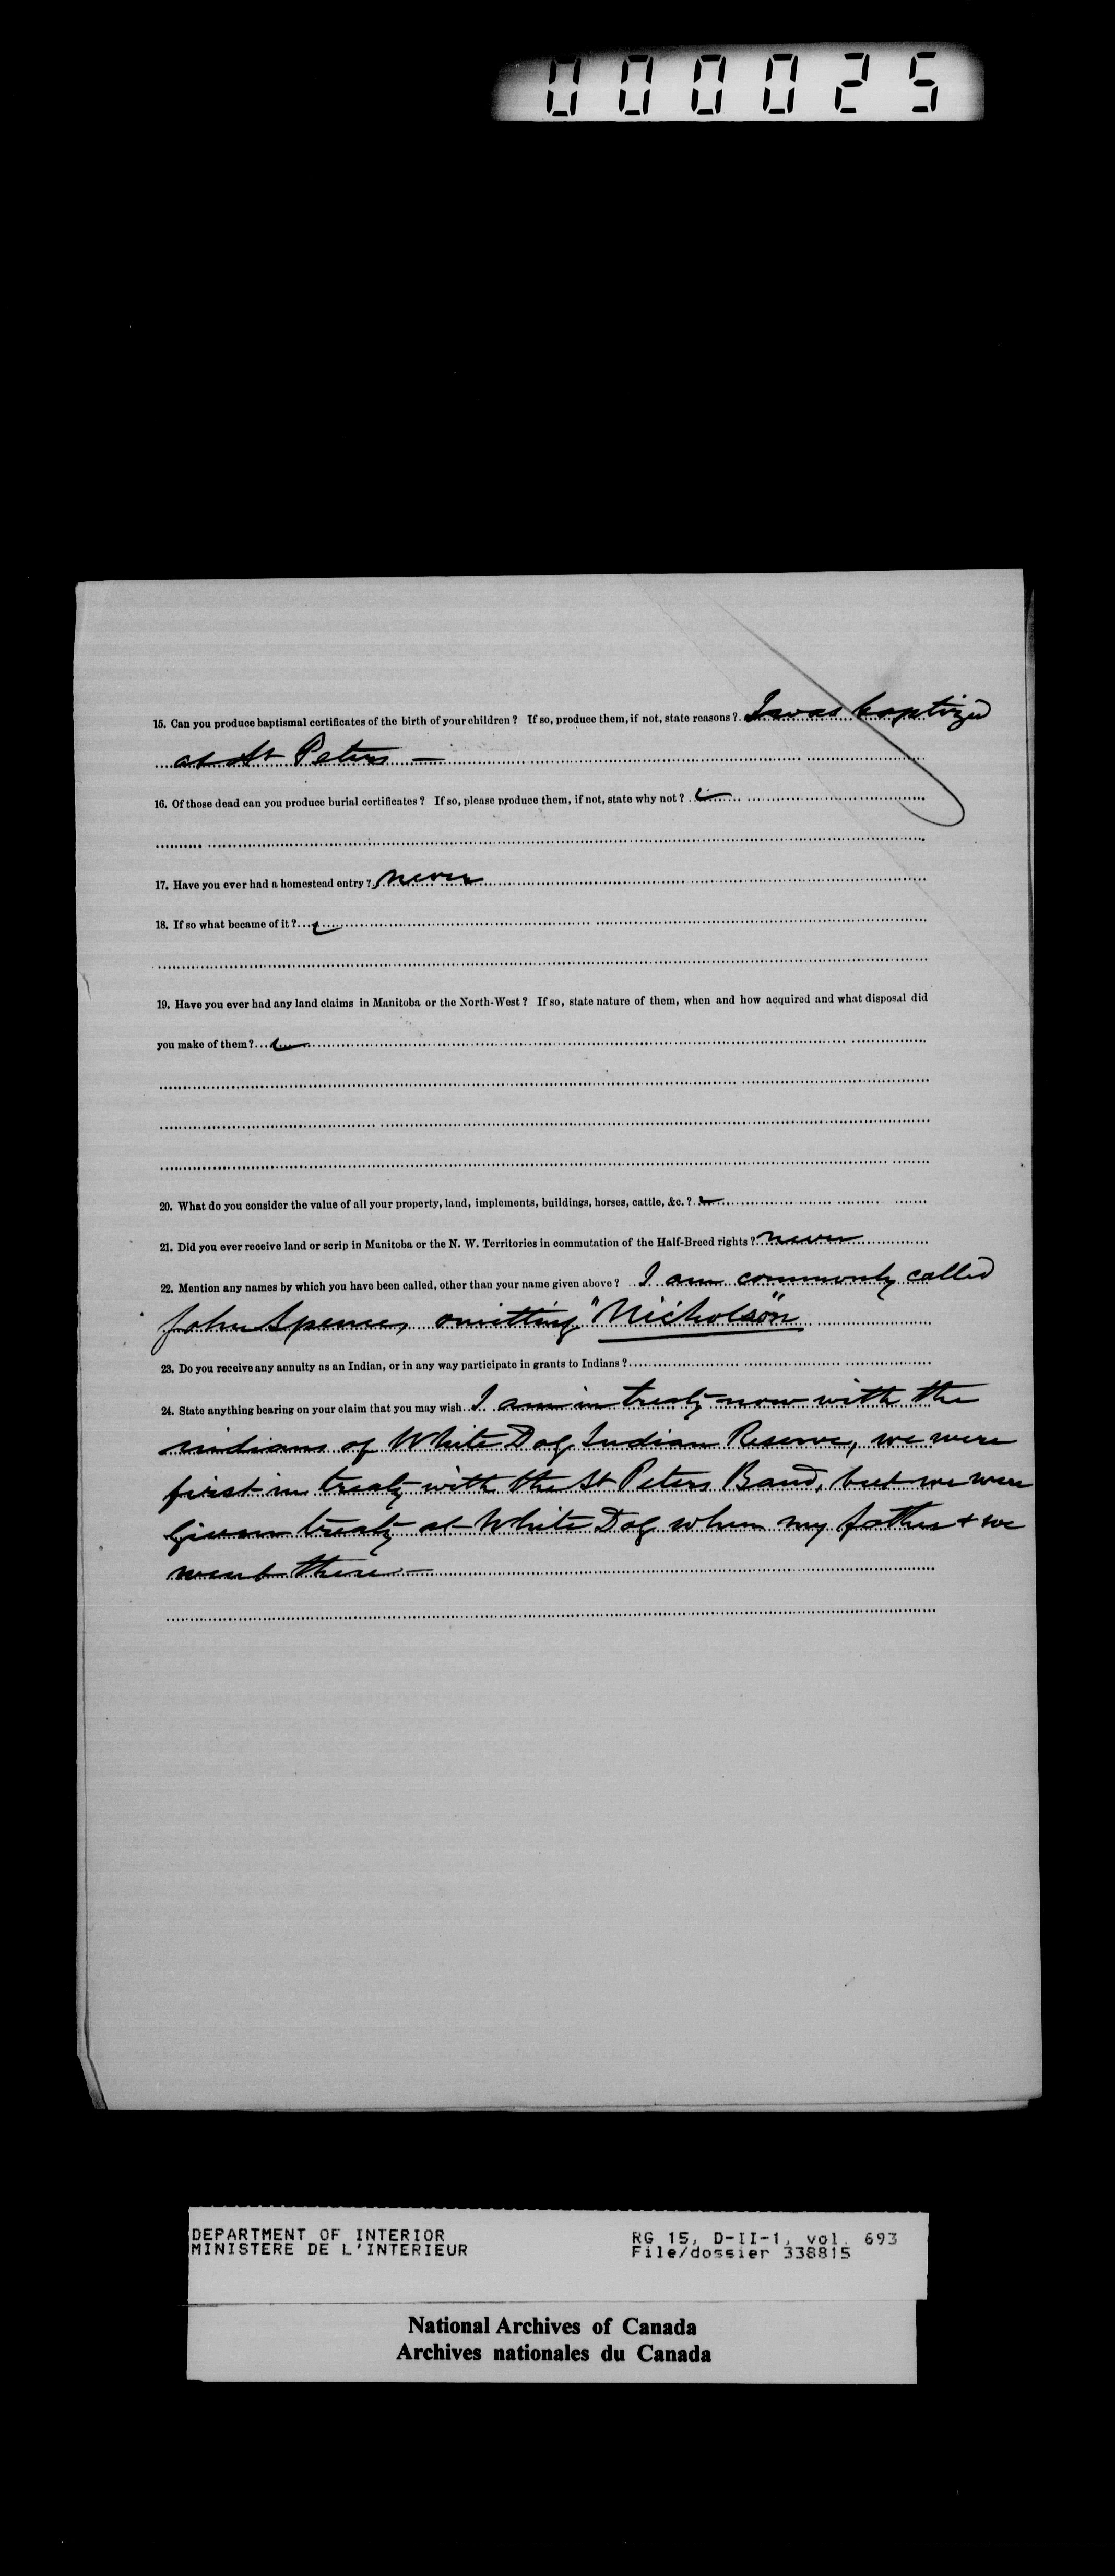 000025
15. Can you produce baptismal certificates of the birth of your children? If so, produce them, if not, state reasons? I was baptized
at St Peters —
16. Of those dead can you produce burial certificates? If so, please produce them, if not, state why not?
17. Have you ever had a homestead entry? never
18. If so what became of it?
19. Have you ever had any land claims in Manitoba or the North-West? If so, state nature of them, when and how acquired and what disposal did
you make of them?
20. What do you consider the value of all your property, land, implements, buildings, horses, cattle, &c.?
21. Did you ever receive land or scrip in Manitoba or the N. W. Territories in commutation of the Half-Breed rights? never
22. Mention any names by which you have been called, other than your name given above? I am commonly called
John Spence, omitting "Nicholson"
23. Do you receive any annuity as an Indian, or in any way participate in grants to Indians?
24. State anything bearing on your claim that you may wish. I am in treaty now with the
indians of White Dog Indian Reserve, we were
first in treaty with the St Peters Band, but we were
given treaty at White Dog when my father + we
went there —
DEPARTMENT OF INTERIOR RG 15, D-II-1, vol. 693
MINISTERE DE L'INTERIEUR File/dossier 338815
National Archives of Canada
Archives nationales du Canada